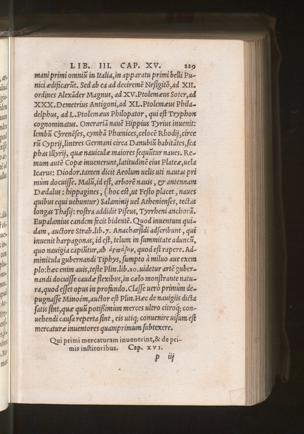 LIB. III. CAP. XV. 229
mani primi omniũ in Italia, in apparatu primi belli Pu-
nici ædificarũt. Sed ab ea ad deciremẽ Nesigitõ, ad XII.
ordines Alexãder Magnus, ad XV. Ptolemæus Soter, ad
XXX. Demetrius Antigoni, ad XL. Ptolemæus Phila-
delphus, ad L. Ptolemæus Philopator, qui est Tryphon
cognominatus. Onerariã nauẽ Hippius Tyrius inuenit:
lembũ Cyrenẽses, cymbã Phœnices, celocẽ Rhodij, circe
rũ Cyprij, lintres Germani circa Danubiũ habitãtes, sca
phas Illyrij, quæ nauiculæ maiores sequũtur naues. Re-
mum autẽ Copæ inuenerunt, latitudinẽ eius Plateæ, uela
Icarus: Diodor. tamen dicit Aeolum uelis uti nautas pri
mim docuisse. Malũ, id est, arborẽ nauis, & antennam
Dædalus: hippagines, (hoc est, ut Festo placet, naues
quibus equi uehuntur) Salaminij uel Athenienses, tectas
longas Thasij: rostra addidit Piseus, Tyrrheni anchorã.
Eupalamius eandem fecit bidentẽ. Quod inuentum qui-
dam, auctore Strab. lib. 7. Anacharsidi adscribunt, qui
inuenit harpagonas, id est, telum in summitate aduncũ,
quo nauigia capiũtur, ab quod est rapere. Ad-
minicula gubernandi Tiphys, sumpto à miluo aue exem
plo: hæc enim auis, teste Plin. lib. 10. uidetur artẽ guber-
nandi docuisse caudæ flexibus, in cælo monstrante natu-
ra, quod esset opus in profundo. Classe uerò primum de-
pugnasse Minoim, auctor est Plin. Hæc de nauigijs dicta
satis sint, quæ quũ potissimum merces ultro citroq; con-
uehendi causa reperta sint, eis utiq; conuenire uisum est
mercaturæ inuentores quamprimum subtexere.
Qui primi mercaturam inuenerint, & de pri-
mis institoribus. Cap. XVI.
p iij